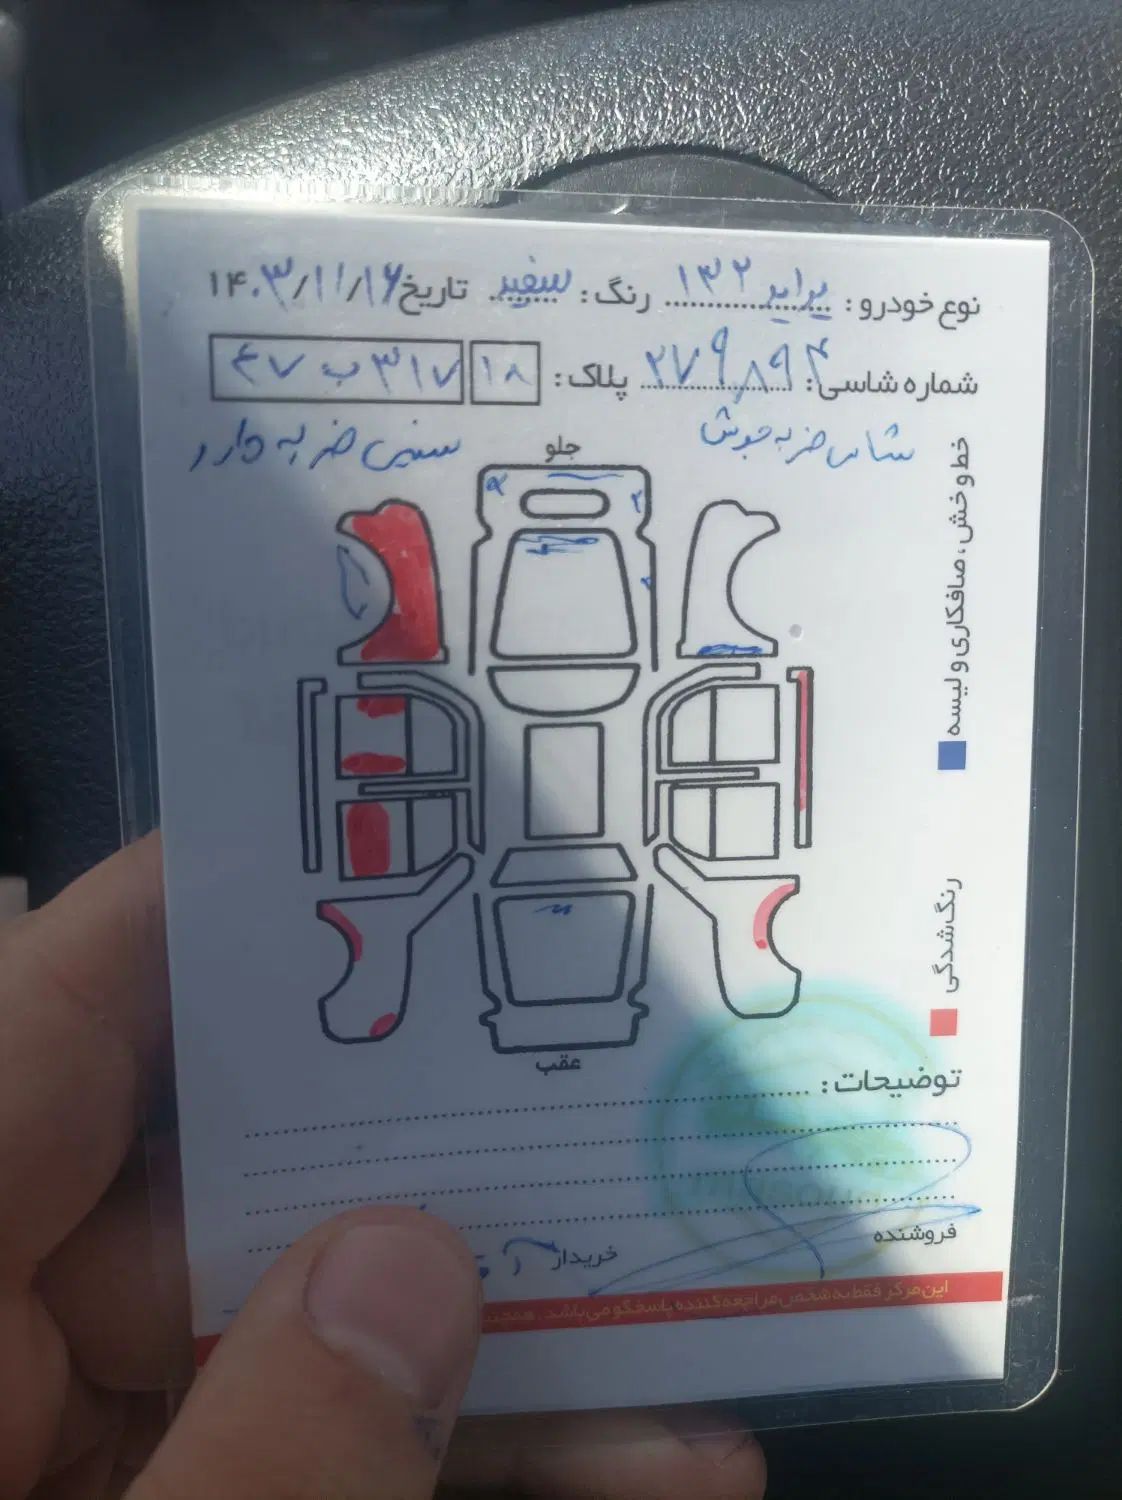 نوع خودرو : پراید ۱۳۲ رنگ : سفید تاریخ ۱۴۰۳/۱۱/۱۶
شماره شاسی : ۲۷۹۸۹۴ پلاک : ۱۸ ۳۱۷ ب ۴۷
شاسی ضربه جوش سینی ضربه دارد
جلو
خط و خش، صافکاری و لیسه
رنگ‌شدگی
عقب
توضیحات :
فروشنده خریدار
این مرکز فقط به شخص مراجعه کننده پاسخگو می باشد .